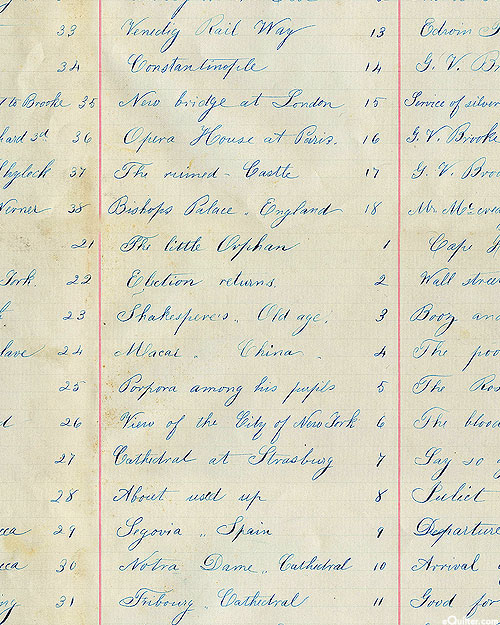 33 Venedig Rail Way 13 Edwin
34 Constantinople 14 G. V.
to Brooke 35 New bridge at London 15 Service of silver
hard 3d 36 Opera House at Paris. 16 G. V. Brooke
Shylock 37 The ruined - Castle 17 G. V.
Verner 38 Bishops Palace „ England 18 Mr.
21 The little Orphan 1 Cape
York. 22 Election returns. 2 Wall
23 Shakespere's „ Old age. 3 Booz and
lave 24 Macai „ China 4 The poo
25 Porpora among his pupils 5 The Ros
d 26 View of the City of New York 6 The blood
27 Cathedral at Strasburg 7 Say so
28 About used up 8 Juliet
cca 29 Segovia „ Spain 9 Departure
cca 30 Notra Dame „ Cathedral 10 Arrival
ny 31 Fribourg „ Cathedral 11 Good for
eQuilter.com